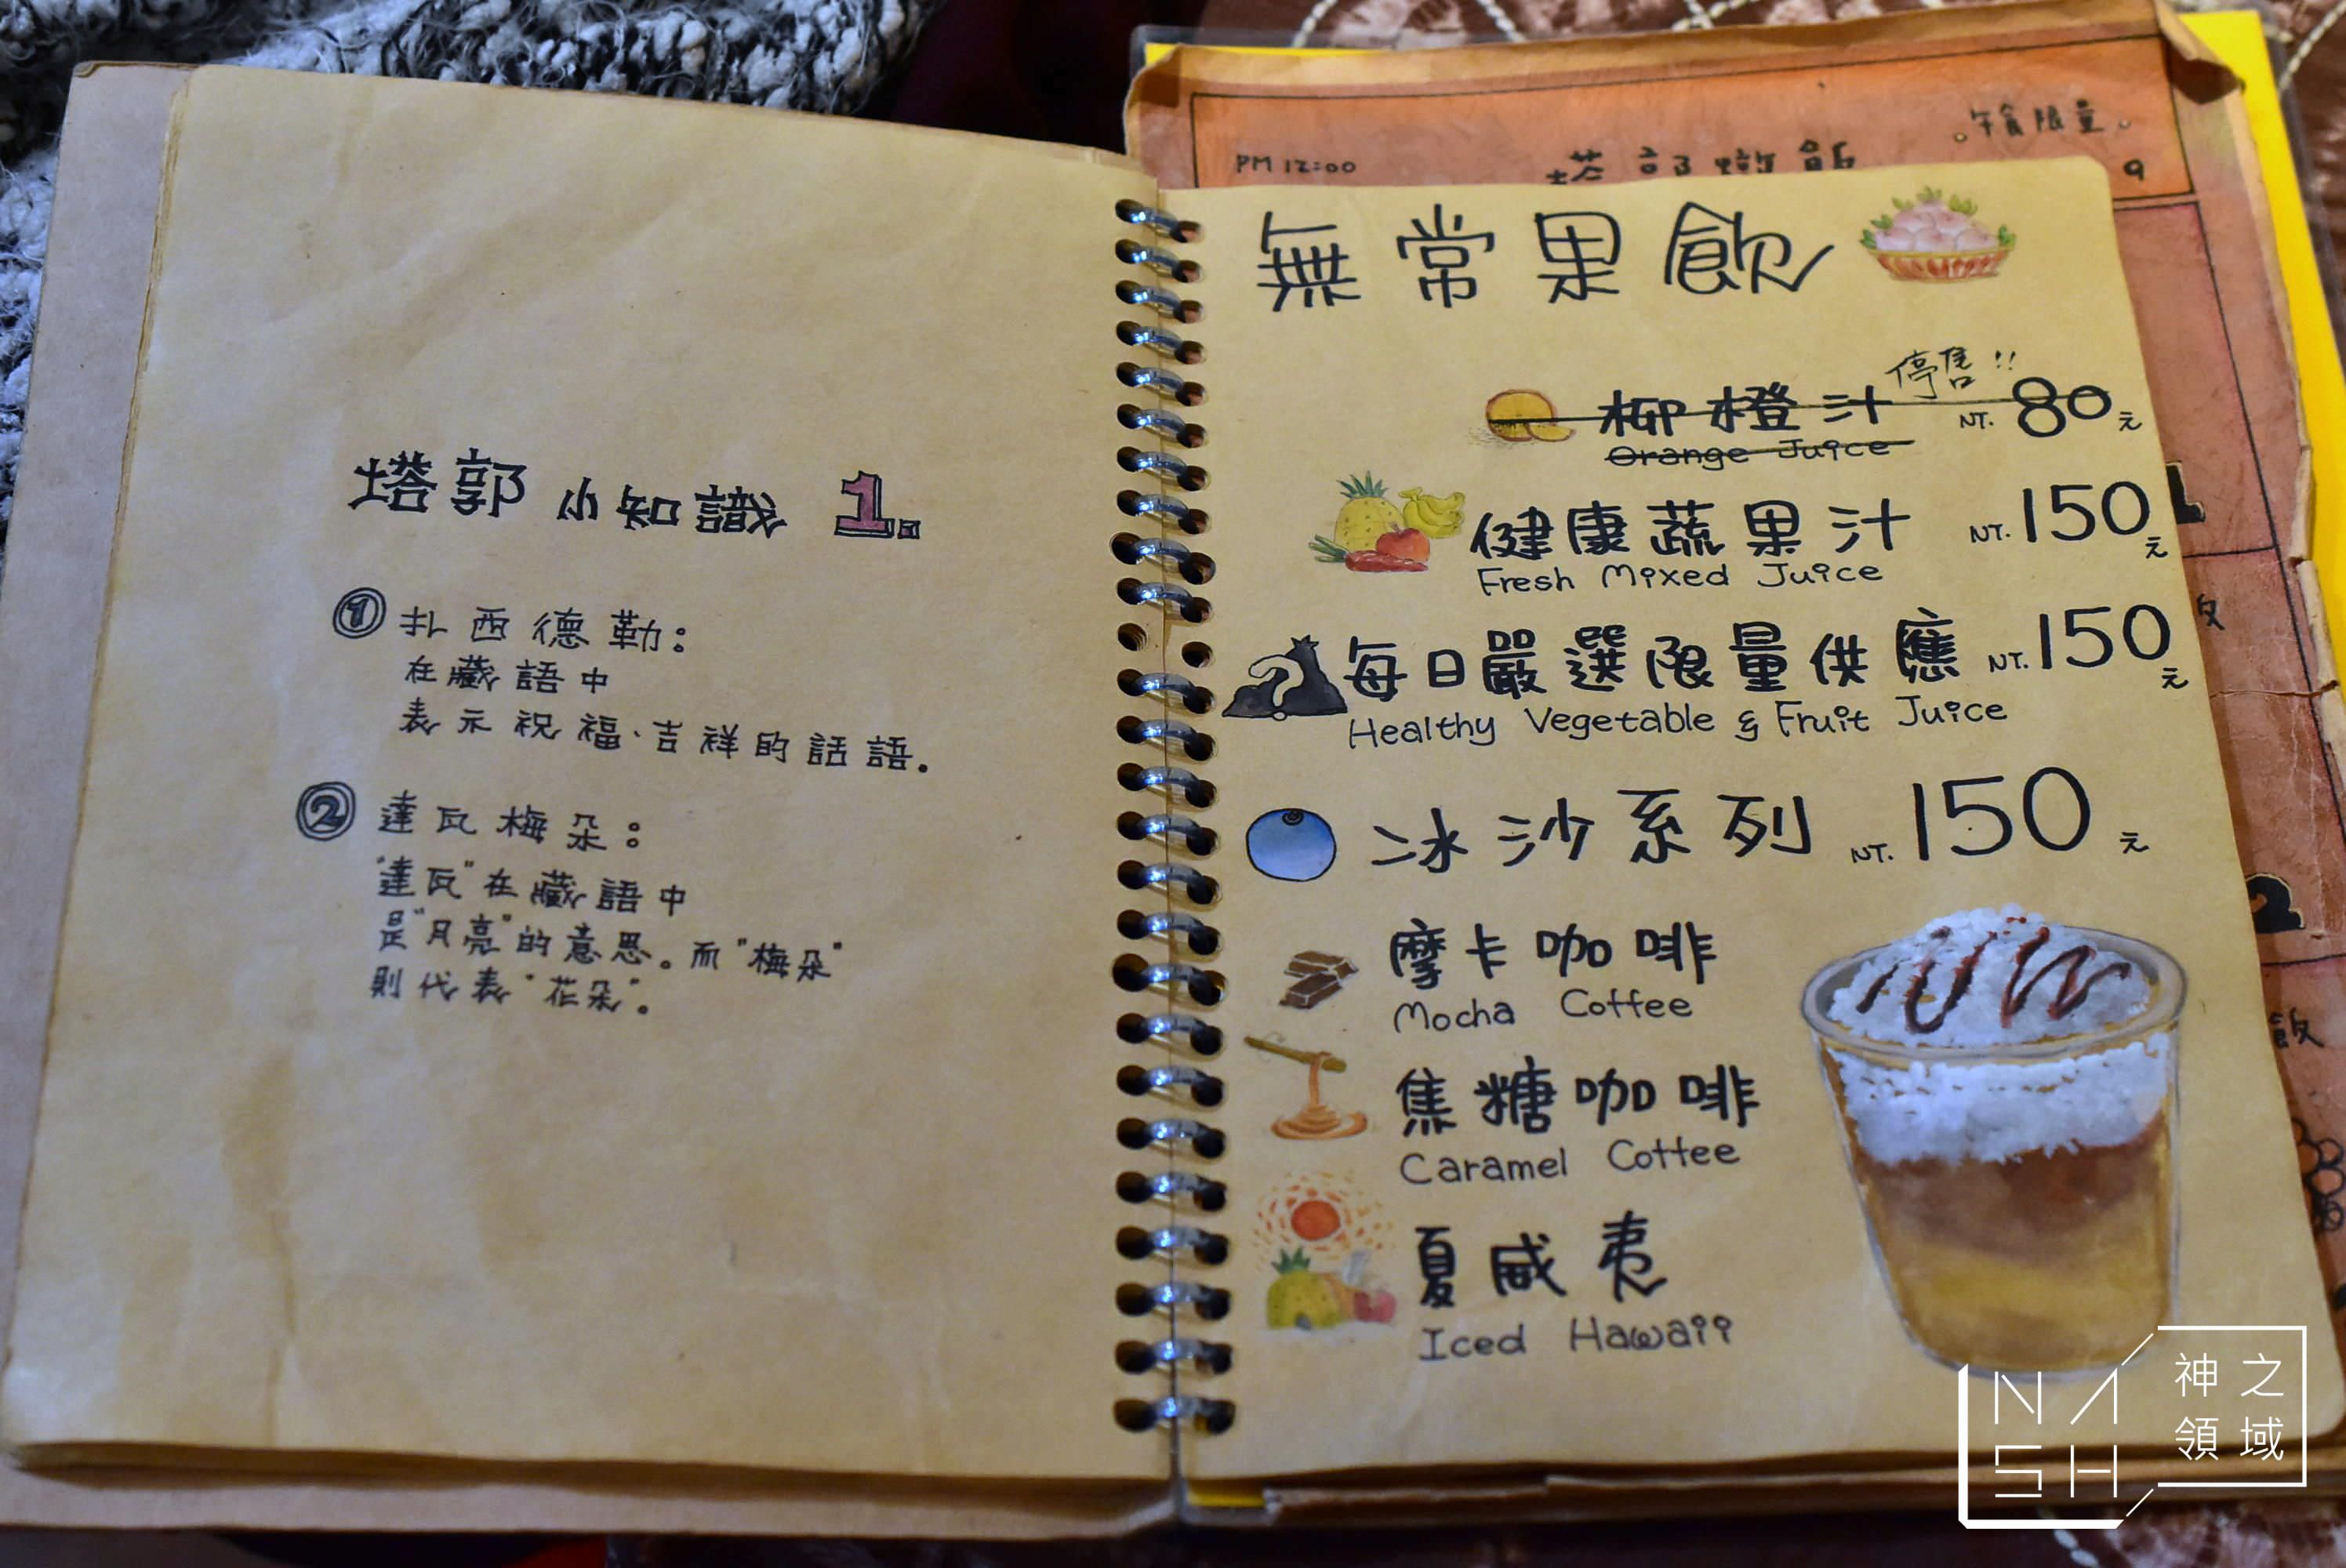 塔郭 小知識 1.
① 扎西德勒：
在藏語中
表示祝福、吉祥的話語。
② 達瓦梅朵：
"達瓦"在藏語中
是"月亮"的意思。而"梅朵"
則代表"花朵"。
午食限量
PM 12:00
9
無常果飲
停售!!
柳橙汁 NT. 80元
Orange Juice
健康蔬果汁 NT. 150元
Fresh Mixed Juice
? 每日嚴選限量供應 NT. 150元
Healthy Vegetable & Fruit Juice
冰沙系列 NT. 150元
摩卡咖啡
Mocha Coffee
焦糖咖啡
Caramel Coffee
夏威夷
Iced Hawaii
NASH
神之
領域